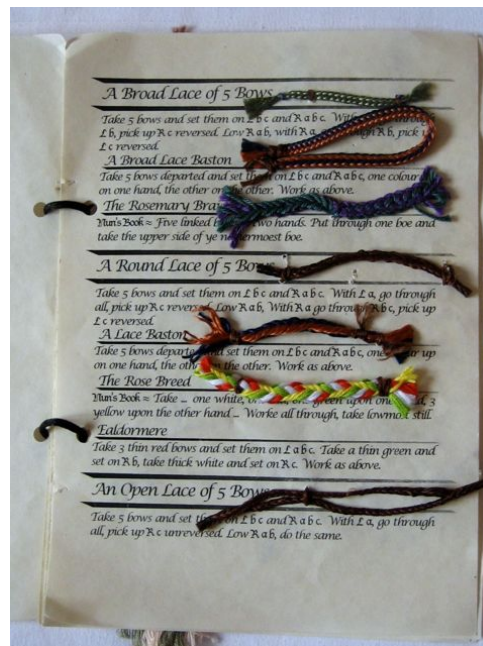 A Broad Lace of 5 Bows
Take 5 bows and set them on L b c and R a b c. With
L b, pick up R c reversed. Low R a b, with R a, R b, pick
L c reversed.
A Broad Lace Baston
Take 5 bows departed and set them on L b c and R a b c, one colour
on one hand, the other on the other. Work as above.
The Rosemary
Nun's Book ≈ Five linked two hands. Put through one boe and
take the upper side of ye boe.
A Round Lace of 5 Bows
Take 5 bows and set them on L b c and R a b c. With L a, go through
all, pick up R c reversed. Low R a b, With R a go through R b c, pick up
L c reversed.
A Lace Baston
Take 5 bows and set them on L b c and R a b c, one up
on one hand, the other on the other. Work as above.
The Rose Breed
Nun's Book ≈ Take – one white, green upon one 3
yellow upon the other hand – Worke all through, take lowmost still.
Ealdormere
Take 3 thin red bows and set them on L a b c. Take a thin green and
set on R b, take thick white and set on R c. Work as above.
An Open Lace of 5 Bows
Take 5 bows and set them on L b c and R a b c. With L a, go through
all, pick up R c unreversed. Low R a b, do the same.